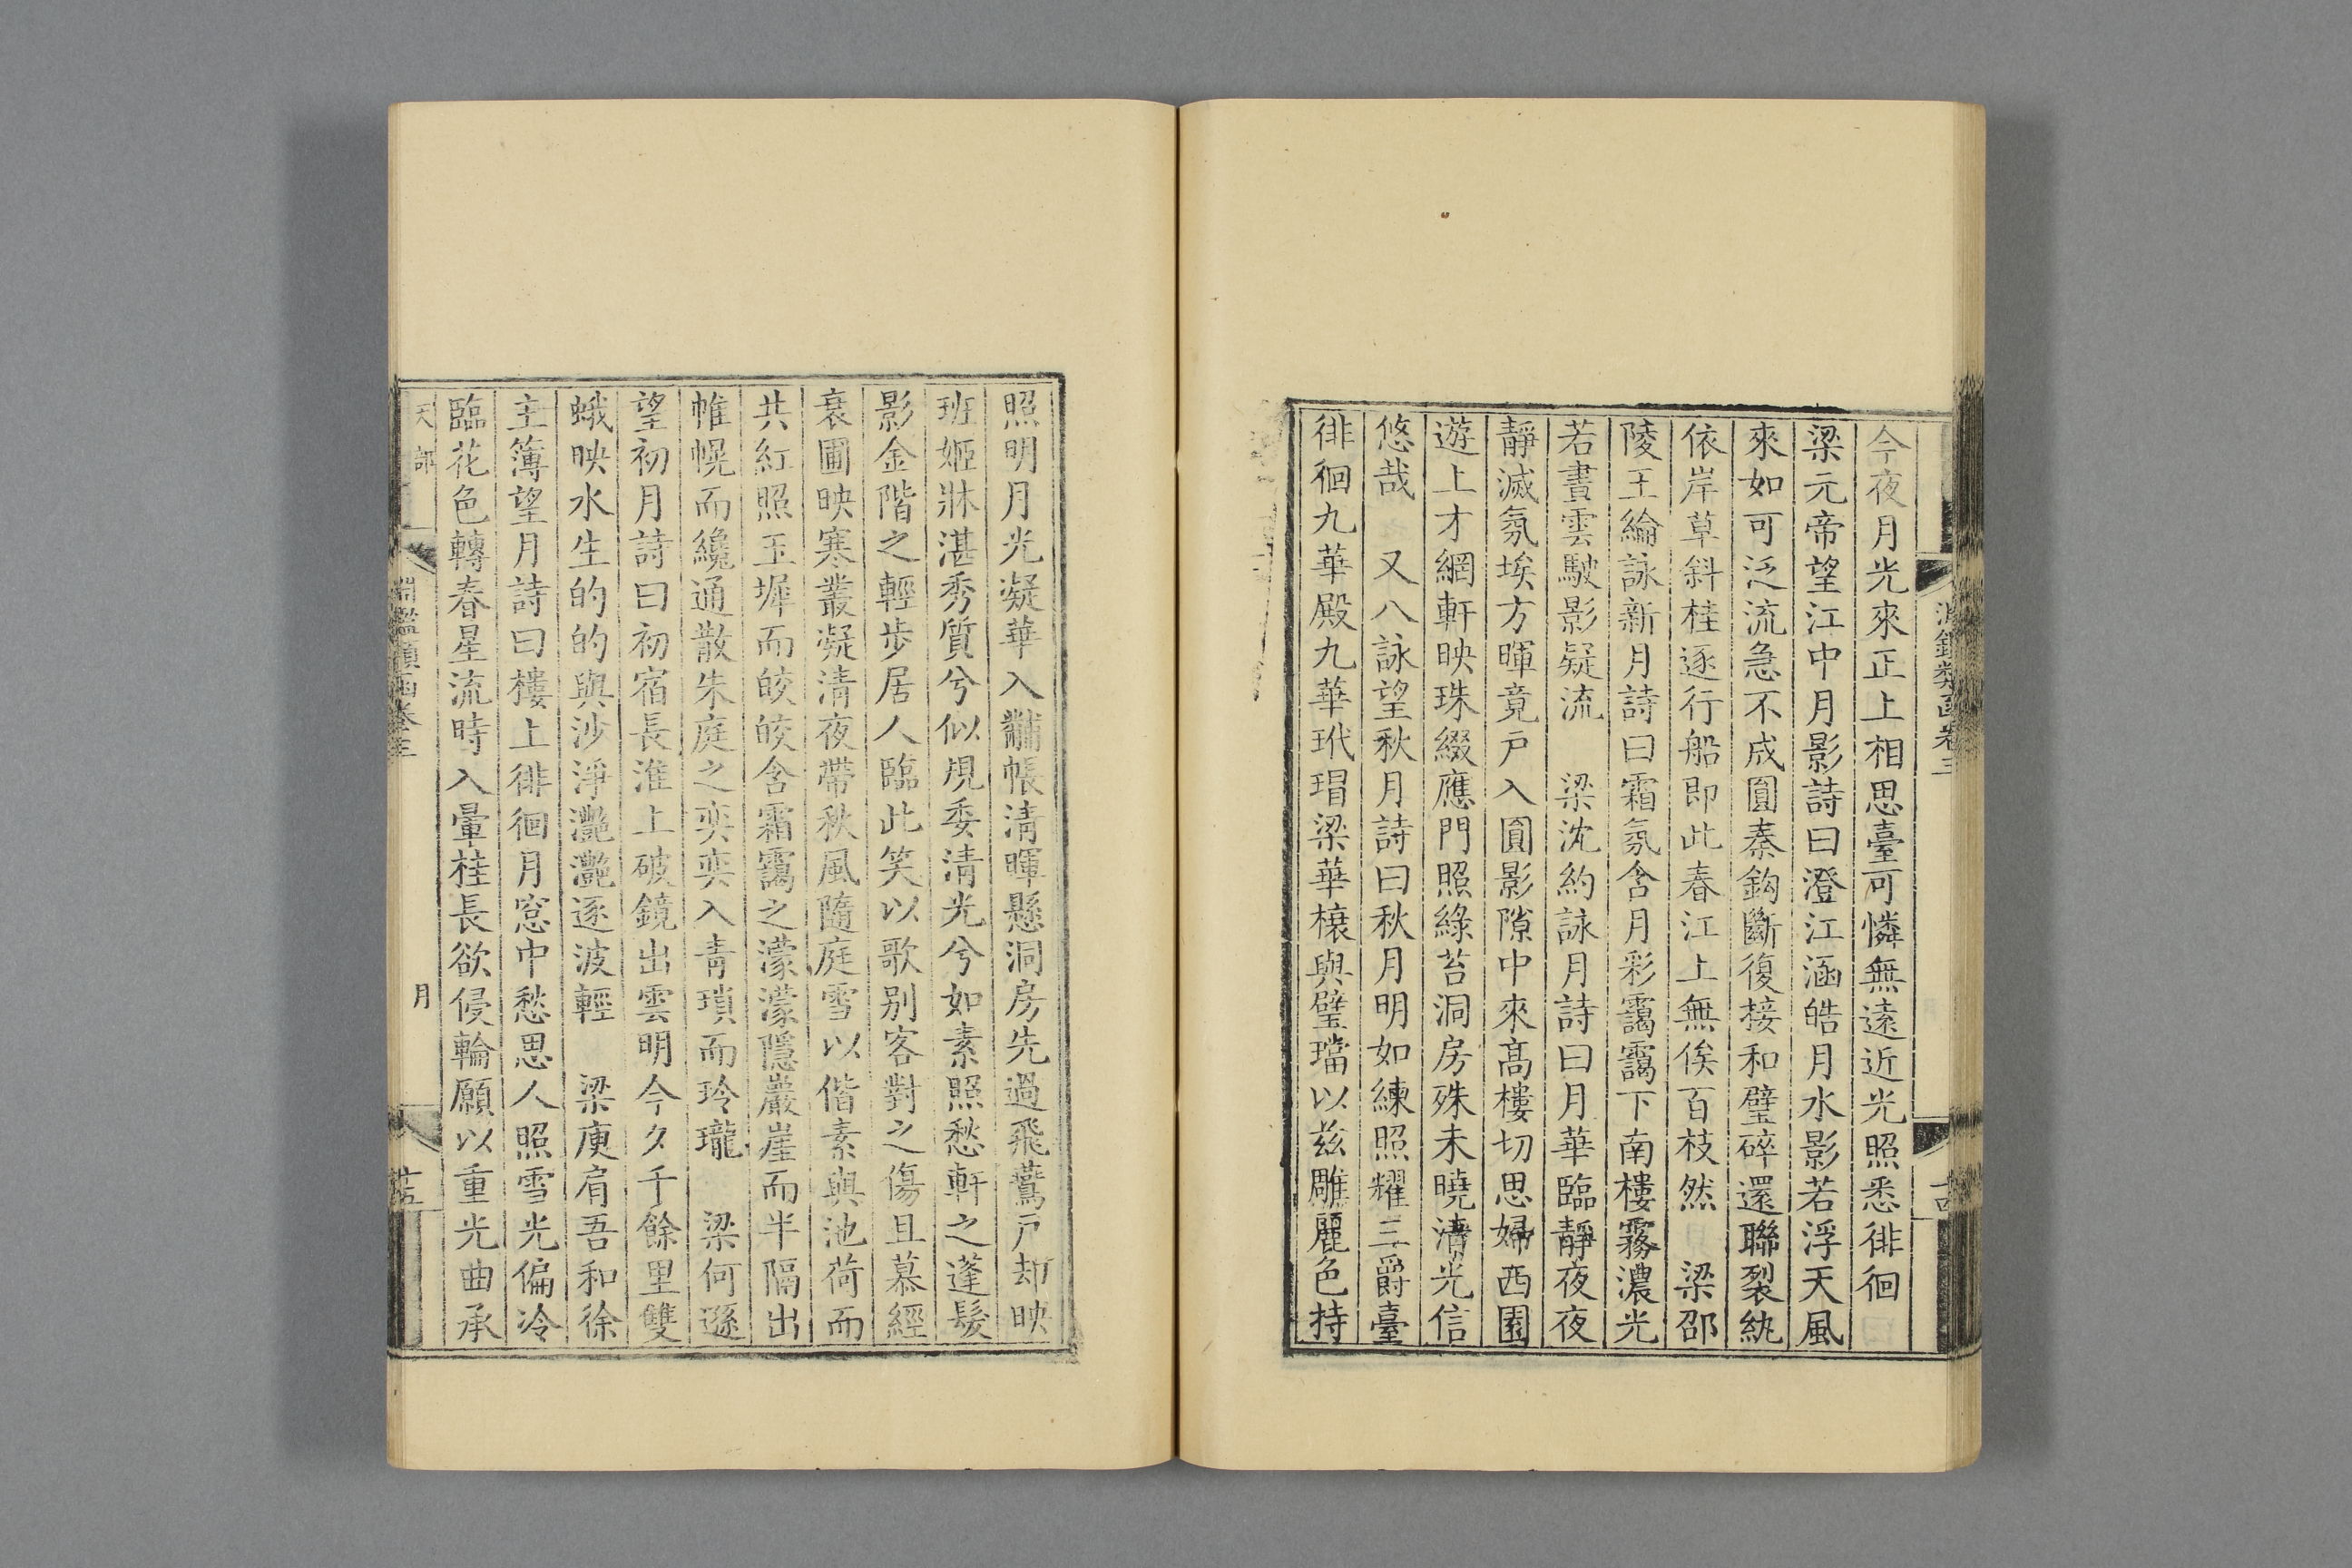 淵鑑類函卷三
今夜月光來正上相思臺可憐無遠近光照悉徘徊
梁元帝望江中月影詩曰澄江涵皓月水影若浮天風
來如可泛流急不成圓秦鈎斷復接和璧碎還聯裂紈
依岸草斜桂逐行船即此春江上無俟百枝然　梁邵
陵王綸詠新月詩曰霜氛含月彩靄靄下南樓霧濃光
若晝雲駛影疑流　梁沈約詠月詩曰月華臨靜夜夜
靜滅氛埃方暉竟戸入圓影隙中來高樓切思婦西園
遊上才網軒映珠綴應門照綠苔洞房殊未曉清光信
悠哉　又八詠望秋月詩曰秋月明如練照耀三爵臺
徘徊九華殿九華玳瑁梁華榱與璧璫以兹雕麗色持
照明月光凝華入黼帳清暉懸洞房先過飛鷰戸却映
班姬牀湛秀質兮似規委清光兮如素照愁軒之蓬髮
影金階之輕歩居人臨此笑以歌别客對之傷且慕經
衰圃映寒叢凝清夜帶秋風隨庭雪以偕素與池荷而
共紅照玉墀而皎皎含霜靄之濛濛隱巖崖而半隔出
帷幌而纔通散朱庭之奕奕入青瑣而玲瓏　梁何遜
望初月詩曰初宿長淮上破鏡出雲明今夕千餘里雙
蛾映水生的的與沙淨灔灔逐波輕　梁庾肩吾和徐
主簿望月詩曰樓上徘徊月窓中愁思人照雪光偏冷
臨花色轉春星流時入暈桂長欲侵輪願以重光曲承
天部
淵鑑類函卷三
月